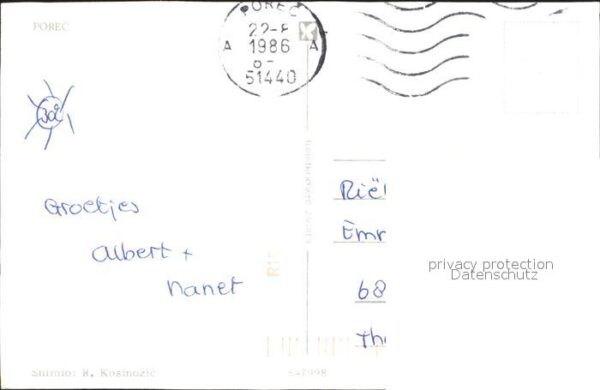 POREČ
POREČ
22-8
1986
A A
51440
Groetjes
Albert +
Nanet
Rië
Emr
68
Th
privacy protection
Datenschutz
Snimio: R. Kosinožić